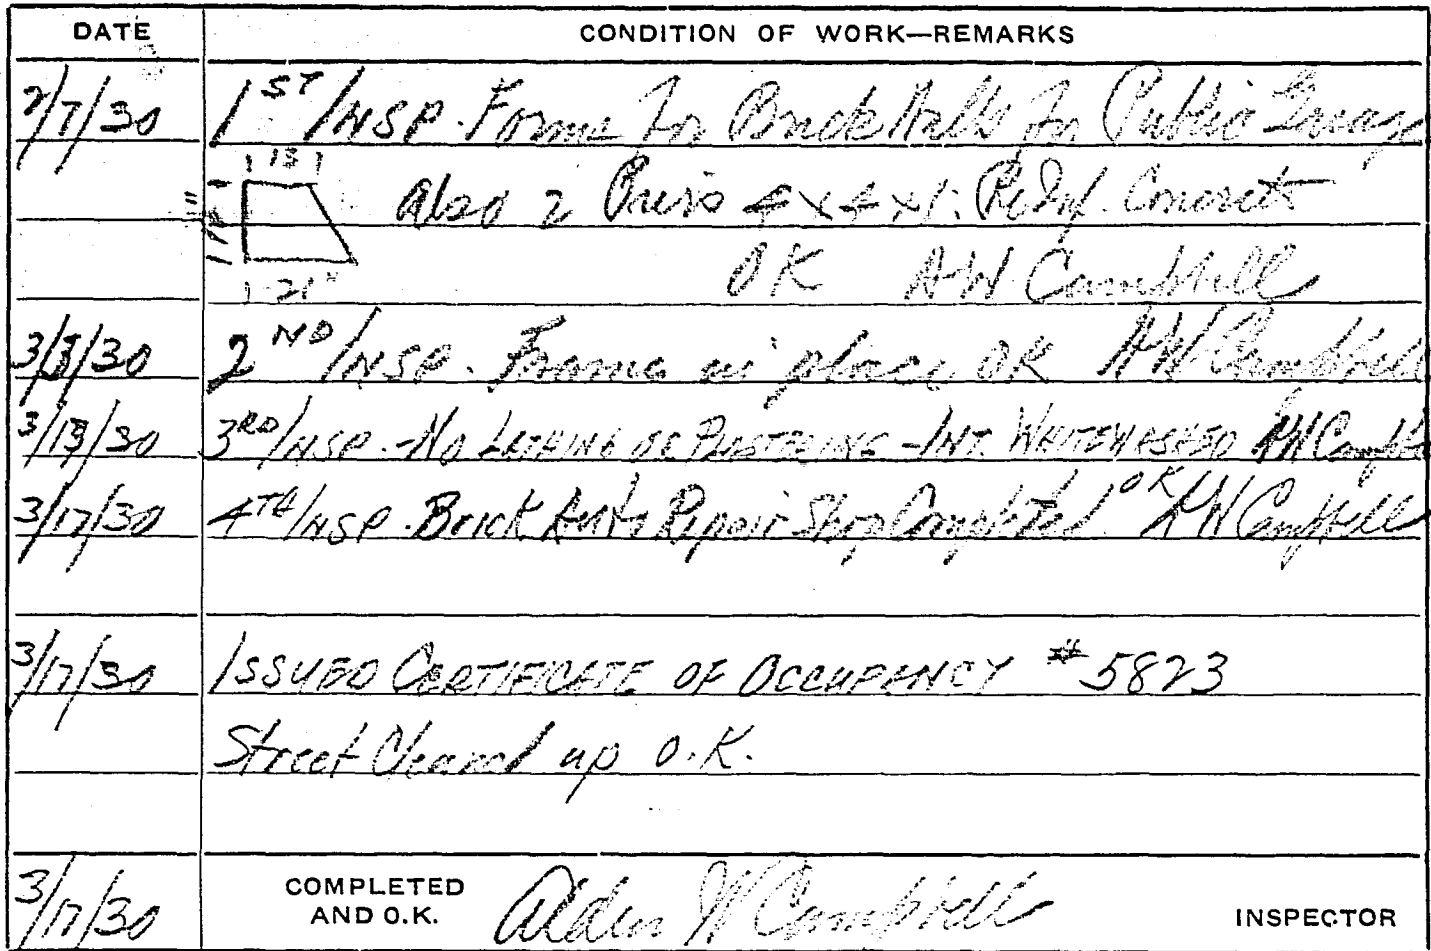 DATE CONDITION OF WORK—REMARKS
2/7/30 1ST INSP. Forms for Brick Walls for Public Garage
13
also 2 Piers 4x4x1. Reinf. Concrete
21"
OK AW Campbell
3/3/30 2ND INSP. Frame in place OK AW Campbell
3/13/30 3RD INSP. - NO LATHING OR PLASTERING - INT. WHITEWASHED AW Campbell
3/17/30 4TH INSP. Brick Auto Repair Shop Completed OK AW Campbell
3/17/30 ISSUED CERTIFICATE OF OCCUPANCY # 5823
Street Cleaned up O.K.
3/17/30 COMPLETED AND O.K. Alden W Campbell INSPECTOR